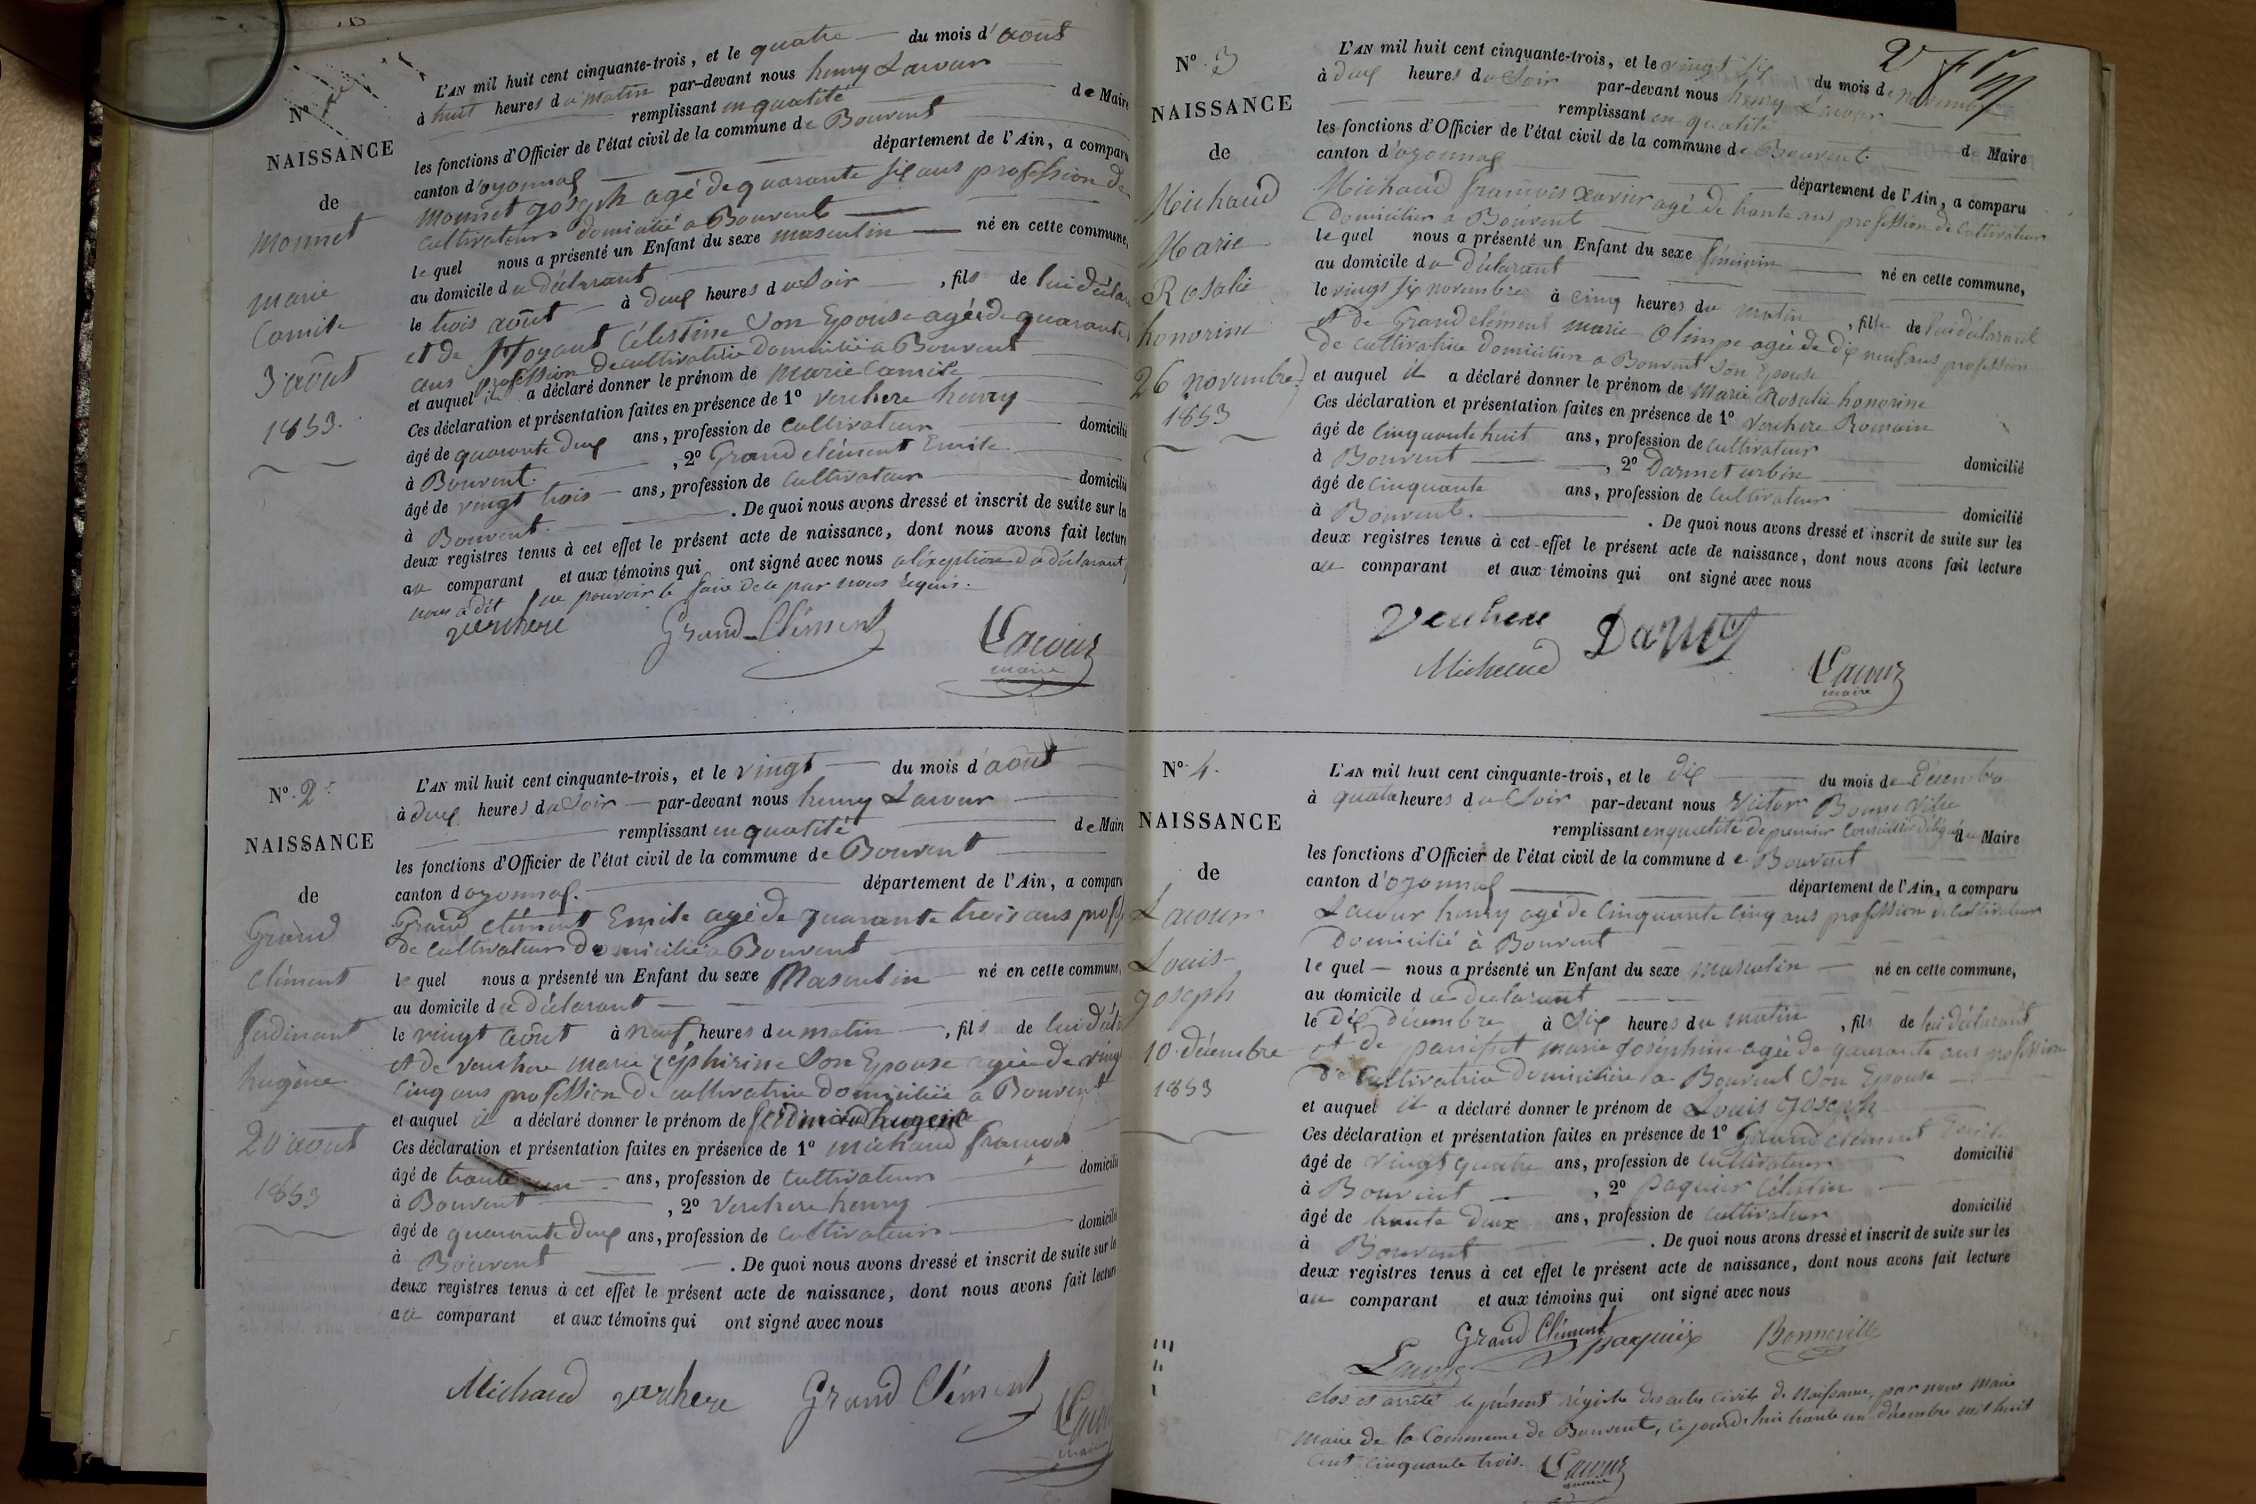 Nº 1
NAISSANCE
de
Monnet
marie
Camile
3 août
1853.
L'AN mil huit cent cinquante-trois, et le quatre du mois d'août
à huit heures du matin par-devant nous henry Lacour
remplissant en qualité de Maire
les fonctions d'Officier de l'état civil de la commune de Bouvent
canton d'oyonnax département de l'Ain, a comparu
Monnet joseph agé de quarante six ans profession de
cultivateur domicilié a Bouvent
le quel nous a présenté un Enfant du sexe masculin né en cette commune,
au domicile du déclarant
le trois août à deux heures du soir, fils de lui décla
et de Célestine Son Epouse agée de quarante
ans profession de cultivatrice domiciliée a Bouvent
et auquel il a déclaré donner le prénom de marie Camile
Ces déclaration et présentation faites en présence de 1º Verchere henry
âgé de quarante deux ans, profession de cultivateur domicilié
à Bouvent. , 2º Grand clément Emile
âgé de vingt trois ans, profession de cultivateur domicilié
à Bouvent. . De quoi nous avons dressé et inscrit de suite sur les
deux registres tenus à cet effet le présent acte de naissance, dont nous avons fait lecture
au comparant et aux témoins qui ont signé avec nous a léxception du déclarant
nous a dit ne pouvoir le faire de ce par nous requis.
verchere Grand-Clément Lacour
maire
Nº 2
NAISSANCE
de
Grand
Clément
ferdinant
hugène
20 août
1853
L'AN mil huit cent cinquante-trois, et le vingt du mois d'août
à deux heures du soir par-devant nous henry Lacour
remplissant en qualité de Maire
les fonctions d'Officier de l'état civil de la commune de Bouvent
canton d'oyonnax. département de l'Ain, a comparu
Grand clément Emile agé de quarante trois ans prof
de cultivateur domicilié a Bouvent
le quel nous a présenté un Enfant du sexe Masculin né en cette commune,
au domicile du déclarant
le vingt août à neuf heures du matin, fils de lui décla
et de verchere marie zéphirine Son Epouse agée de vingt
cinq ans profession de cultivatrice domiciliée a Bouvent
et auquel il a déclaré donner le prénom de ferdinand hugene
Ces déclaration et présentation faites en présence de 1º michaud francois
âgé de trante un ans, profession de cultivateur domicilié
à Bouvent , 2º Verchere henry
âgé de quarante deux ans, profession de cultivateur domicilié
à Bouvent . De quoi nous avons dressé et inscrit de suite sur les
deux registres tenus à cet effet le présent acte de naissance, dont nous avons fait lecture
au comparant et aux témoins qui ont signé avec nous
Michaud verchere Grand Clément Lacour
maire
Nº 3
NAISSANCE
de
Michaud
Marie
Rosalie
honorine
26 novembre
1853
L'AN mil huit cent cinquante-trois, et le vingt six du mois de novembre
à deux heures du soir par-devant nous henry Lacour
remplissant en qualité de Maire
les fonctions d'Officier de l'état civil de la commune de Bouvent.
canton d'oyonnax département de l'Ain, a comparu
Michaud francois xavier agé de trante ans profession de cultivateur
domicilier a Bouvent
le quel nous a présenté un Enfant du sexe féminin né en cette commune,
au domicile du déclarant
le vingt six novembre à cinq heures du matin, fille de lui déclarant
et de Grand clément marie Olimpe agée de dix neuf ans profession
de cultivatrice domicilier a Bouvent Son Epouse
et auquel il a déclaré donner le prénom de Marie Rosalie honorine
Ces déclaration et présentation faites en présence de 1º Verchere Romain
âgé de cinquante huit ans, profession de cultivateur domicilié
à Bouvent , 2º Darmet urbin
âgé de cinquante ans, profession de cultivateur domicilié
à Bouvent. . De quoi nous avons dressé et inscrit de suite sur les
deux registres tenus à cet effet le présent acte de naissance, dont nous avons fait lecture
au comparant et aux témoins qui ont signé avec nous
Verchere Darmet
Michaud Lacour
maire
Nº 4.
NAISSANCE
de
Lacour
Louis
joseph
10 décembre
1853
L'AN mil huit cent cinquante-trois, et le dix du mois de décembre
à quatre heures du soir par-devant nous Victor Bonneville
remplissant en qualité de premier Conseiller délégué de Maire
les fonctions d'Officier de l'état civil de la commune de Bouvent
canton d'oyonnax département de l'Ain, a comparu
Lacour henry agé de cinquante cinq ans profession de cultivateur
domicilié à Bouvent
le quel nous a présenté un Enfant du sexe masculin né en cette commune,
au domicile du déclarant
le dix décembre à six heures du matin, fils de lui déclarant
et de marie Joséphine agée de quarante ans profession
de cultivatrice domicilière a Bouvent Son Epouse
et auquel il a déclaré donner le prénom de Louis joseph
Ces déclaration et présentation faites en présence de 1º Grand clément Emile
âgé de vingt quatre ans, profession de cultivateur domicilié
à Bouvent , 2º paquier Célestin
âgé de trante deux ans, profession de cultivateur domicilié
à Bouvent . De quoi nous avons dressé et inscrit de suite sur les
deux registres tenus à cet effet le présent acte de naissance, dont nous avons fait lecture
au comparant et aux témoins qui ont signé avec nous
Grand Clément Bonneville
Lacour
clos et arrêté le présent régistre des actes civils de Naissance, par nous Maire
Maire de la Commune de Bouvent, ce jourd'hui trente un décembre mil huit
cent cinquante trois. Lacour
maire